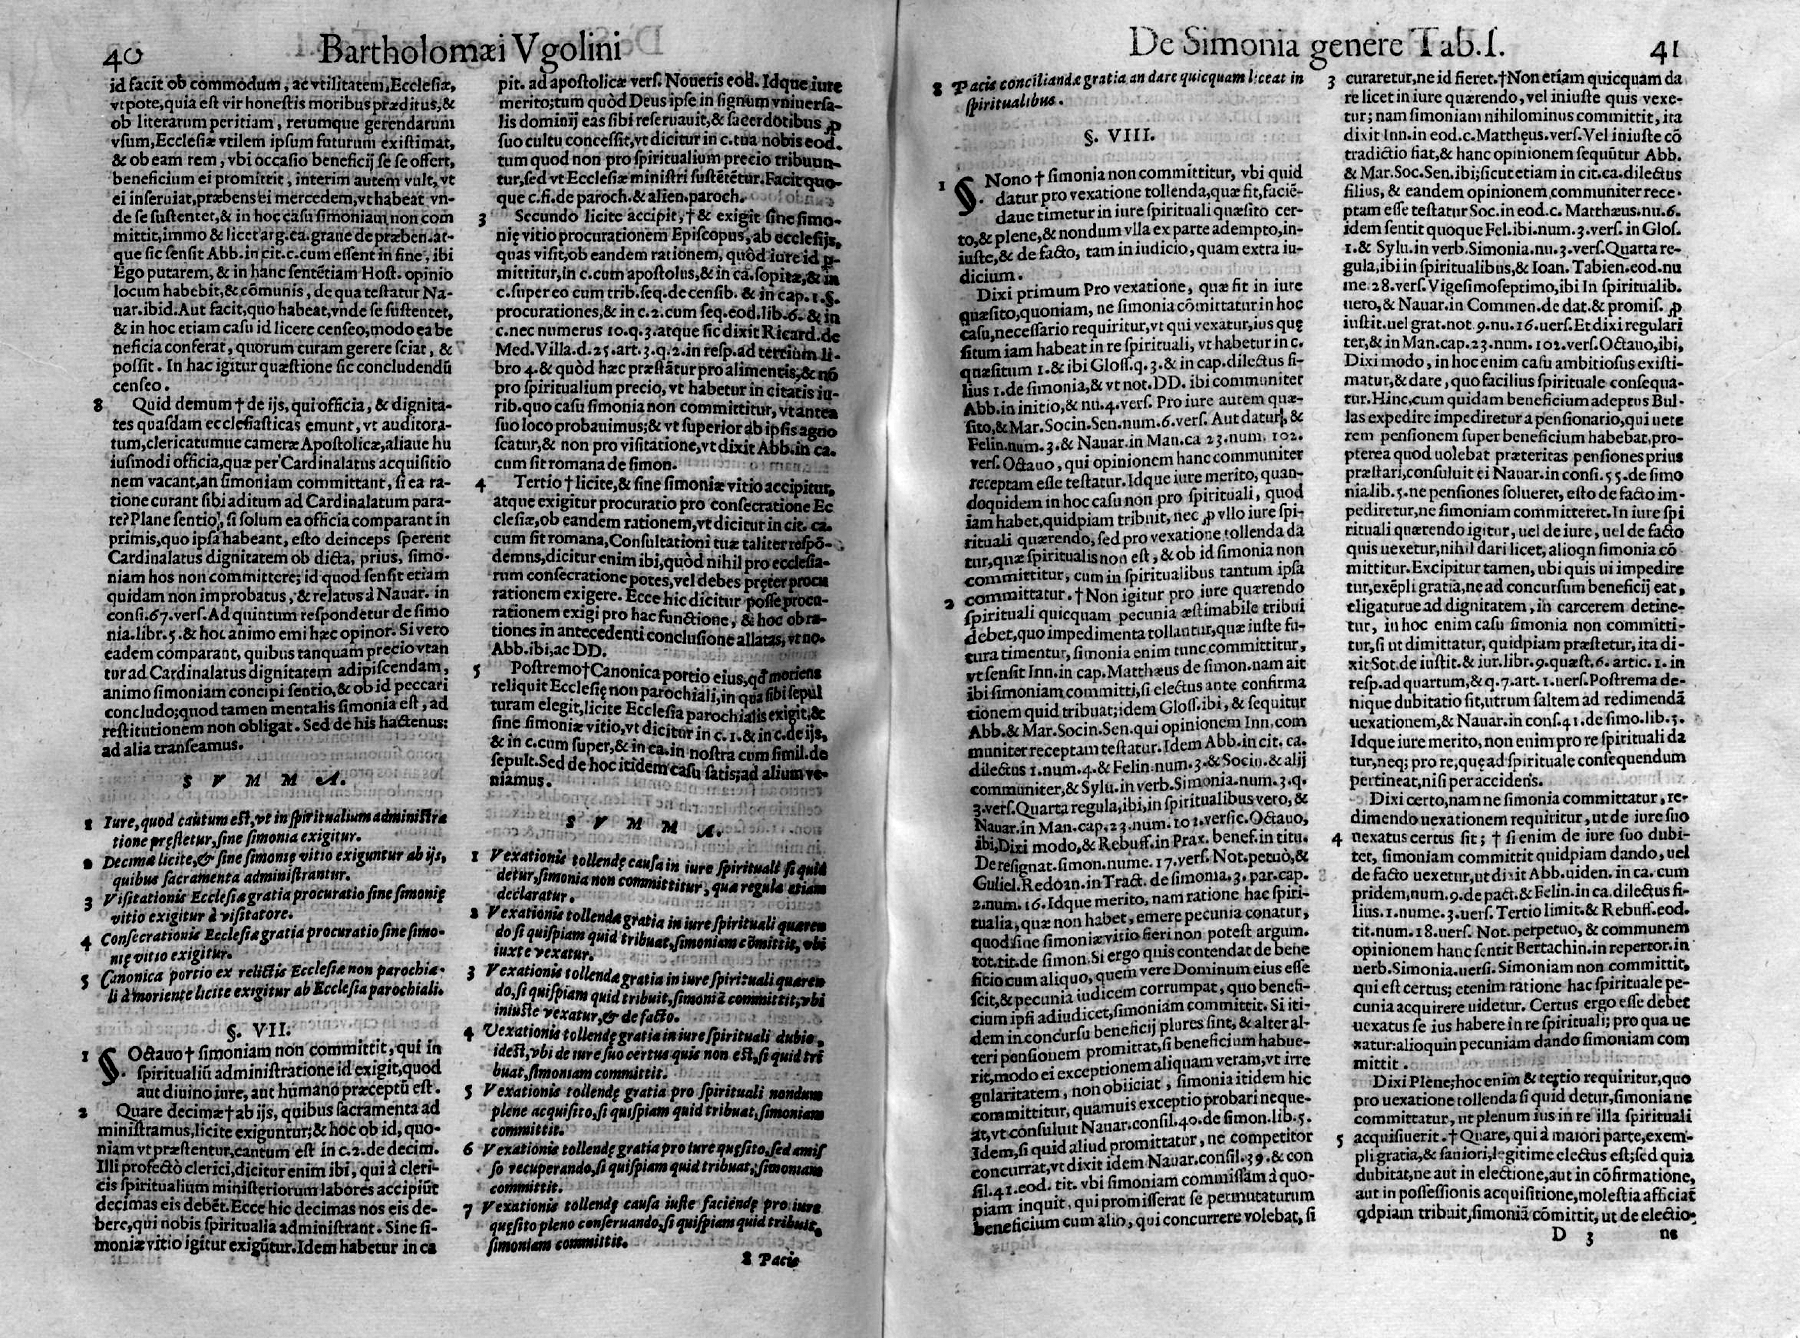 40 Bartholomæi Vgolini
id facit ob commodum, ac vtilitatem, Ecclesiæ,
vtpote, quia est vir honestis moribus præditus, &
ob literarum peritiam, rerumque gerendarum
vsum, Ecclesiæ vtilem ipsum futurum existimat,
& ob eam rem, vbi occasio beneficij se se offert,
beneficium ei promittit, interim autem vult, vt
ei inseruiat, præbens ei mercedem, vt habeat vn-
de se sustentet, & in hoc casu simoniam non com
mittit, immo & licet arg. ca. graue de præben. at-
que sic sensit Abb. in cit. c. cum essent in fine, ibi
Ego putarem, & in hanc sentētiam Host. opinio
locum habebit, & cōmunis, de qua testatur Na-
uar. ibid. Aut facit, quo habeat, vnde se sustentet,
& in hoc etiam casu id licere censeo, modo ea be
neficia conferat, quorum curam gerere sciat, &
possit. In hac igitur quæstione sic concludendū
censeo.
8 Quid demum † de ijs, qui officia, & dignita-
tes quasdam ecclesiasticas emunt, vt auditora-
tum, clericatumue cameræ Apostolicæ, aliaue hu
iusmodi officia, quæ per Cardinalatus acquisitio
nem vacant, an simoniam committant, si ea ra-
tione curant sibi aditum ad Cardinalatum para-
re? Plane sentio, si solum ea officia comparant in
primis, quo ipsa habeant, esto deinceps sperent
Cardinalatus dignitatem ob dicta, prius, simo-
niam hos non committere; id quod sensit etiam
quidam non improbatus, & relatus à Nauar. in
consi. 67. vers. Ad quintum respondetur de simo
nia. libr. 5. & hoc animo emi hæc opinor. Si vero
eadem comparant, quibus tanquam precio vtan
tur ad Cardinalatus dignitatem adipiscendam,
animo simoniam concipi sentio, & ob id peccari
concludo; quod tamen mentalis simonia est, ad
restitutionem non obligat. Sed de his hactenus:
ad alia transeamus.
S V M M A.
1 Iure, quod cautum est, vt in spiritualium administra
tione pręstetur, sine simonia exigitur.
2 Decimæ licite, & sine simonię vitio exiguntur ab ijs,
quibus sacramenta administrantur.
3 Visitationis Ecclesiæ gratia procuratio sine simonię
vitio exigitur à visitatore.
4 Consecrationis Ecclesiæ gratia procuratio sine simo-
nię vitio exigitur.
5 Canonica portio ex relictis Ecclesiæ non parochia-
li à moriente licite exigitur ab Ecclesia parochiali.
§. VII.
1 §. Octauo † simoniam non committit, qui in
spiritualiū administratione id exigit, quod
aut diuino iure, aut humano præceptū est.
2 Quare decimæ † ab ijs, quibus sacramenta ad
ministramus, licite exiguntur; & hoc ob id, quo-
niam vt præstentur, cantum est in c. 2. de decim.
Illi profectò clerici, dicitur enim ibi, qui à cleri-
cis spiritualium ministeriorum labores accipiūt
decimas eis debēt. Ecce hic decimas nos eis de-
bere, qui nobis spiritualia administrant. Sine si-
moniæ vitio igitur exigūtur. Idem habetur in ca
pit. ad apostolicæ vers. Noueris eod. Idque iure
merito; tum quòd Deus ipse in signum vniuersa-
lis dominij eas sibi reseruauit, & sacerdotibus ꝓ
suo cultu concessit, vt dicitur in c. tua nobis eod.
tum quod non pro spiritualium precio tribuun-
tur, sed vt Ecclesiæ ministri sustētētur. Facit quo-
que c. fi. de paroch. & alien. paroch.
3 Secundo licite accipit, † & exigit sine simo-
nię vitio procurationem Episcopus, ab ecclesijs,
quas visit, ob eandem rationem, quòd iure id p-
mittitur, in c. cum apostolus, & in ca. sopitæ, & in
c. super eo cum trib. seq. de censib. & in cap. 1. §.
procurationes, & in c. 2. cum seq. eod. lib. 6. & in
c. nec numerus 10. q. 3. atque sic dixit Ricard. de
Med. Villa. d. 25. art. 3. q. 2. in resp. ad tertium li-
bro 4. & quòd hæc præstātur pro alimentis, & nō
pro spiritualium precio, vt habetur in citatis iu-
rib. quo casu simonia non committitur, vt antea
suo loco probauimus; & vt superior ab ipsis agno
scatur, & non pro visitatione, vt dixit Abb. in ca.
cum sit romana de simon.
4 Tertio † licite, & sine simoniæ vitio accipitur,
atque exigitur procuratio pro consecratione Ec
clesiæ, ob eandem rationem, vt dicitur in cit. ca.
cum sit romana, Consultationi tuæ taliter respō-
demns, dicitur enim ibi, quòd nihil pro ecclesia-
rum consecratione potes, vel debes pręter procu
rationem exigere. Ecce hic dicitur posse procu-
rationem exigi pro hac functione, & hoc ob ra-
tiones in antecedenti conclusione allatas, vt no.
Abb. ibi, ac DD.
5 Postremo † Canonica portio eius, qđ moriens
reliquit Ecclesię non parochiali, in qua sibi sepul
turam elegit, licite Ecclesia parochialis exigit, &
sine simoniæ vitio, vt dicitur in c. 1. & in c. de ijs,
& in c. cum super, & in ca. in nostra cum simil. de
sepult. Sed de hoc itidem casu satis; ad alium ve-
niamus.
S V M M A.
1 Vexationis tollendę causa in iure spirituali si quid
detur, simonia non committitur, quæ regula etiam
declaratur.
2 Vexationis tollendæ gratia in iure spirituali quæren
do si quispiam quid tribuat, simoniam cōmittit, vbi
iuxte vexatur.
3 Vexationis tollendæ gratia in iure spirituali quæren
do, si quispiam quid tribuit, simoniā committit, vbi
iniuste vexatur, & de facto.
4 Vexationis tollendę gratia in iure spirituali dubio,
idest, vbi de iure suo certus quis non est, si quid tri
buat, simoniam committit.
5 Vexationis tollendę gratia pro spirituali nondum
plene acquisito, si quispiam quid tribuat, simoniam
committit.
6 Vexationis tollendę gratia pro iure quęsito, sed amis
so recuperando, si quispiam quid tribuat, simoniam
committit.
7 Vexationis tollendę causa iuste faciēdę pro iure
quęsito pleno conseruando, si quispiam quid tribuit,
simoniam committit.
8 Pacis
De Simonia genere Tab. I. 41
8 Pacis conciliandæ gratia an dare quicquam liceat in
spiritualibus.
§. VIII.
1 §. Nono † simonia non committitur, vbi quid
datur pro vexatione tollenda, quæ fit, faciē-
daue timetur in iure spirituali quæsito cer-
to, & plene, & nondum vlla ex parte adempto, in-
iuste, & de facto, tam in iudicio, quam extra iu-
dicium.
Dixi primum Pro vexatione, quæ fit in iure
quæsito, quoniam, ne simonia cōmittatur in hoc
casu, necessario requiritur, vt qui vexatur, ius quę
situm iam habeat in re spirituali, vt habetur in c.
quæsitum 1. & ibi Gloss. q. 3. & in cap. dilectus fi-
lius 1. de simonia, & vt not. DD. ibi communiter
Abb. in initio, & nu. 4. vers. Pro iure autem quæ-
sito, & Mar. Socin. Sen. num. 6. vers. Aut datur, &
Felin. num. 3. & Nauar. in Man. ca 23. num. 102.
vers. Octauo, qui opinionem hanc communiter
receptam esse testatur. Idque iure merito, quan-
doquidem in hoc casu non pro spirituali, quod
iam habet, quidpiam tribuit, nec ꝓ vllo iure spi-
rituali quærendo, sed pro vexatione tollenda da
tur, quæ spiritualis non est, & ob id simonia non
committitur, cum in spiritualibus tantum ipsa
2 committatur. † Non igitur pro iure quærendo
spirituali quicquam pecunia æstimabile tribui
debet, quo impedimenta tollantur, quæ iuste fu-
tura timentur, simonia enim tunc committitur,
vt sensit Inn. in cap. Matthæus de simon. nam ait
ibi simoniam committi, si electus ante confirma
tionem quid tribuat; idem Gloss. ibi, & sequitur
Abb. & Mar. Socin. Sen. qui opinionem Inn. com
muniter receptam testatur. Idem Abb. in cit. ca.
dilectus 1. num. 4. & Felin. num. 3. & Socin. & alij
communiter, & Sylu. in verb. Simonia. num. 3. q.
3. vers. Quarta regula, ibi, in spiritualibus vero, &
Nauar. in Man. cap. 23. num. 101. versic. Octauo,
ibi, Dixi modo, & Rebuff. in Prax. benef. in titu.
De resignat. simon. nume. 17. vers. Not. petuò, &
Guliel. Redoan. in Tract. de simonia. 3. par. cap.
2. num. 16. Idque merito, nam ratione hac spiri-
tualia, quæ non habet, emere pecunia conatur,
quod sine simoniæ vitio fieri non potest argum.
tot. tit. de simon. Si ergo quis contendat de bene
ficio cum aliquo, quem vere Dominum eius esse
scit, & pecunia iudicem corrumpat, quo benefi-
cium ipsi adiudicet, simoniam committit. Si iti-
dem in concursu beneficij plures sint, & alter al-
teri pensionem promittat, si beneficium habue-
rit, modo ei exceptionem aliquam veram, vt irre
gularitatem, non obiiciat, simonia itidem hic
committitur, quamuis exceptio probari neque-
at, vt consuluit Nauar. consil. 40. de simon. lib. 5.
Idem, si quid aliud promittatur, ne competitor
concurrat, vt dixit idem Nauar. consil. 39. & con
sil. 41. eod. tit. vbi simoniam commissam à quo-
piam inquit, qui promisserat se permutaturum
beneficium cum alio, qui concurrere volebat, si
3 curaretur, ne id fieret. † Non etiam quicquam da
re licet in iure quærendo, vel iniuste quis vexe-
tur; nam simoniam nihilominus committit, ita
dixit Inn. in eod. c. Matthęus. vers. Vel iniuste cō
tradictio fiat, & hanc opinionem sequūtur Abb.
& Mar. Soc. Sen. ibi; sicut etiam in cit. ca. dilectus
filius, & eandem opinionem communiter rece-
ptam esse testatur Soc. in eod. c. Matthæus. nu. 6.
idem sentit quoque Fel. ibi. num. 3. vers. in Glos.
1. & Sylu. in verb. Simonia. nu. 3. vers. Quarta re-
gula, ibi in spiritualibus, & Ioan. Tabien. eod. nu
me. 28. vers. Vigesimoseptimo, ibi In spiritualib.
uero, & Nauar. in Commen. de dat. & promis. ꝓ
iustit. uel grat. not. 9. nu. 16. uers. Et dixi regulari
ter, & in Man. cap. 23. num. 102. vers. Octauo, ibi,
Dixi modo, in hoc enim casu ambitiosus existi-
matur, & dare, quo facilius spirituale consequa-
tur. Hinc, cum quidam beneficium adeptus Bul-
las expedire impediretur a pensionario, qui uete
rem pensionem super beneficium habebat, pro-
pterea quod uolebat præteritas pensiones prius
præstari, consuluit ei Nauar. in consi. 55. de simo
nia. lib. 5. ne pensiones solueret, esto de facto im-
pediretur, ne simoniam committeret. In iure spi
rituali quærendo igitur, uel de iure, uel de facto
quis uexetur, nihil dari licet, alioqn simonia cō
mittitur. Excipitur tamen, ubi quis ui impedire
tur, exēpli gratia, ne ad concursum beneficij eat,
eligaturue ad dignitatem, in carcerem detine-
tur, in hoc enim casu simonia non committi-
tur, si ut dimittatur, quidpiam præstetur, ita di-
xit Sot. de iustit. & iur. libr. 9. quæst. 6. artic. 1. in
resp. ad quartum, & q. 7. art. 1. uers. Postrema de-
nique dubitatio sit, utrum saltem ad redimendā
uexationem, & Nauar. in cons. 41. de simo. lib. 5.
Idque iure merito, non enim pro re spirituali da
tur, neq; pro re, quę ad spirituale consequendum
pertineat, nisi per accidens.
Dixi certo, nam ne simonia committatur, re-
dimendo uexationem requiritur, ut de iure suo
4 uexatus certus sit; † si enim de iure suo dubi-
tet, simoniam committit quidpiam dando, uel
de facto uexetur, ut dixit Abb. uiden. in ca. cum
pridem, num. 9. de pact. & Felin. in ca. dilectus fi-
lius. 1. nume. 3. uers. Tertio limit. & Rebuff. eod.
tit. num. 18. uers. Not. perpetuo, & communem
opinionem hanc sentit Bertachin. in repertor. in
uerb. Simonia. uersi. Simoniam non committit,
qui est certus; etenim ratione hac spirituale pe-
cunia acquirere uidetur. Certus ergo esse debet
uexatus se ius habere in re spirituali; pro qua ue
xatur: alioquin pecuniam dando simoniam com
mittit.
Dixi Plene; hoc enim & tertio requiritur, quo
pro uexatione tollenda si quid detur, simonia ne
committatur, ut plenum ius in re illa spirituali
5 acquisiuerit. † Quare, qui à maiori parte, exem-
pli gratia, & saniori, legitime electus est; sed quia
dubitat, ne aut in electione, aut in cōfirmatione,
aut in possessionis acquisitione, molestia afficiat
qdpiam tribuit, simoniā cōmittit, ut de electio-
D 3 ne